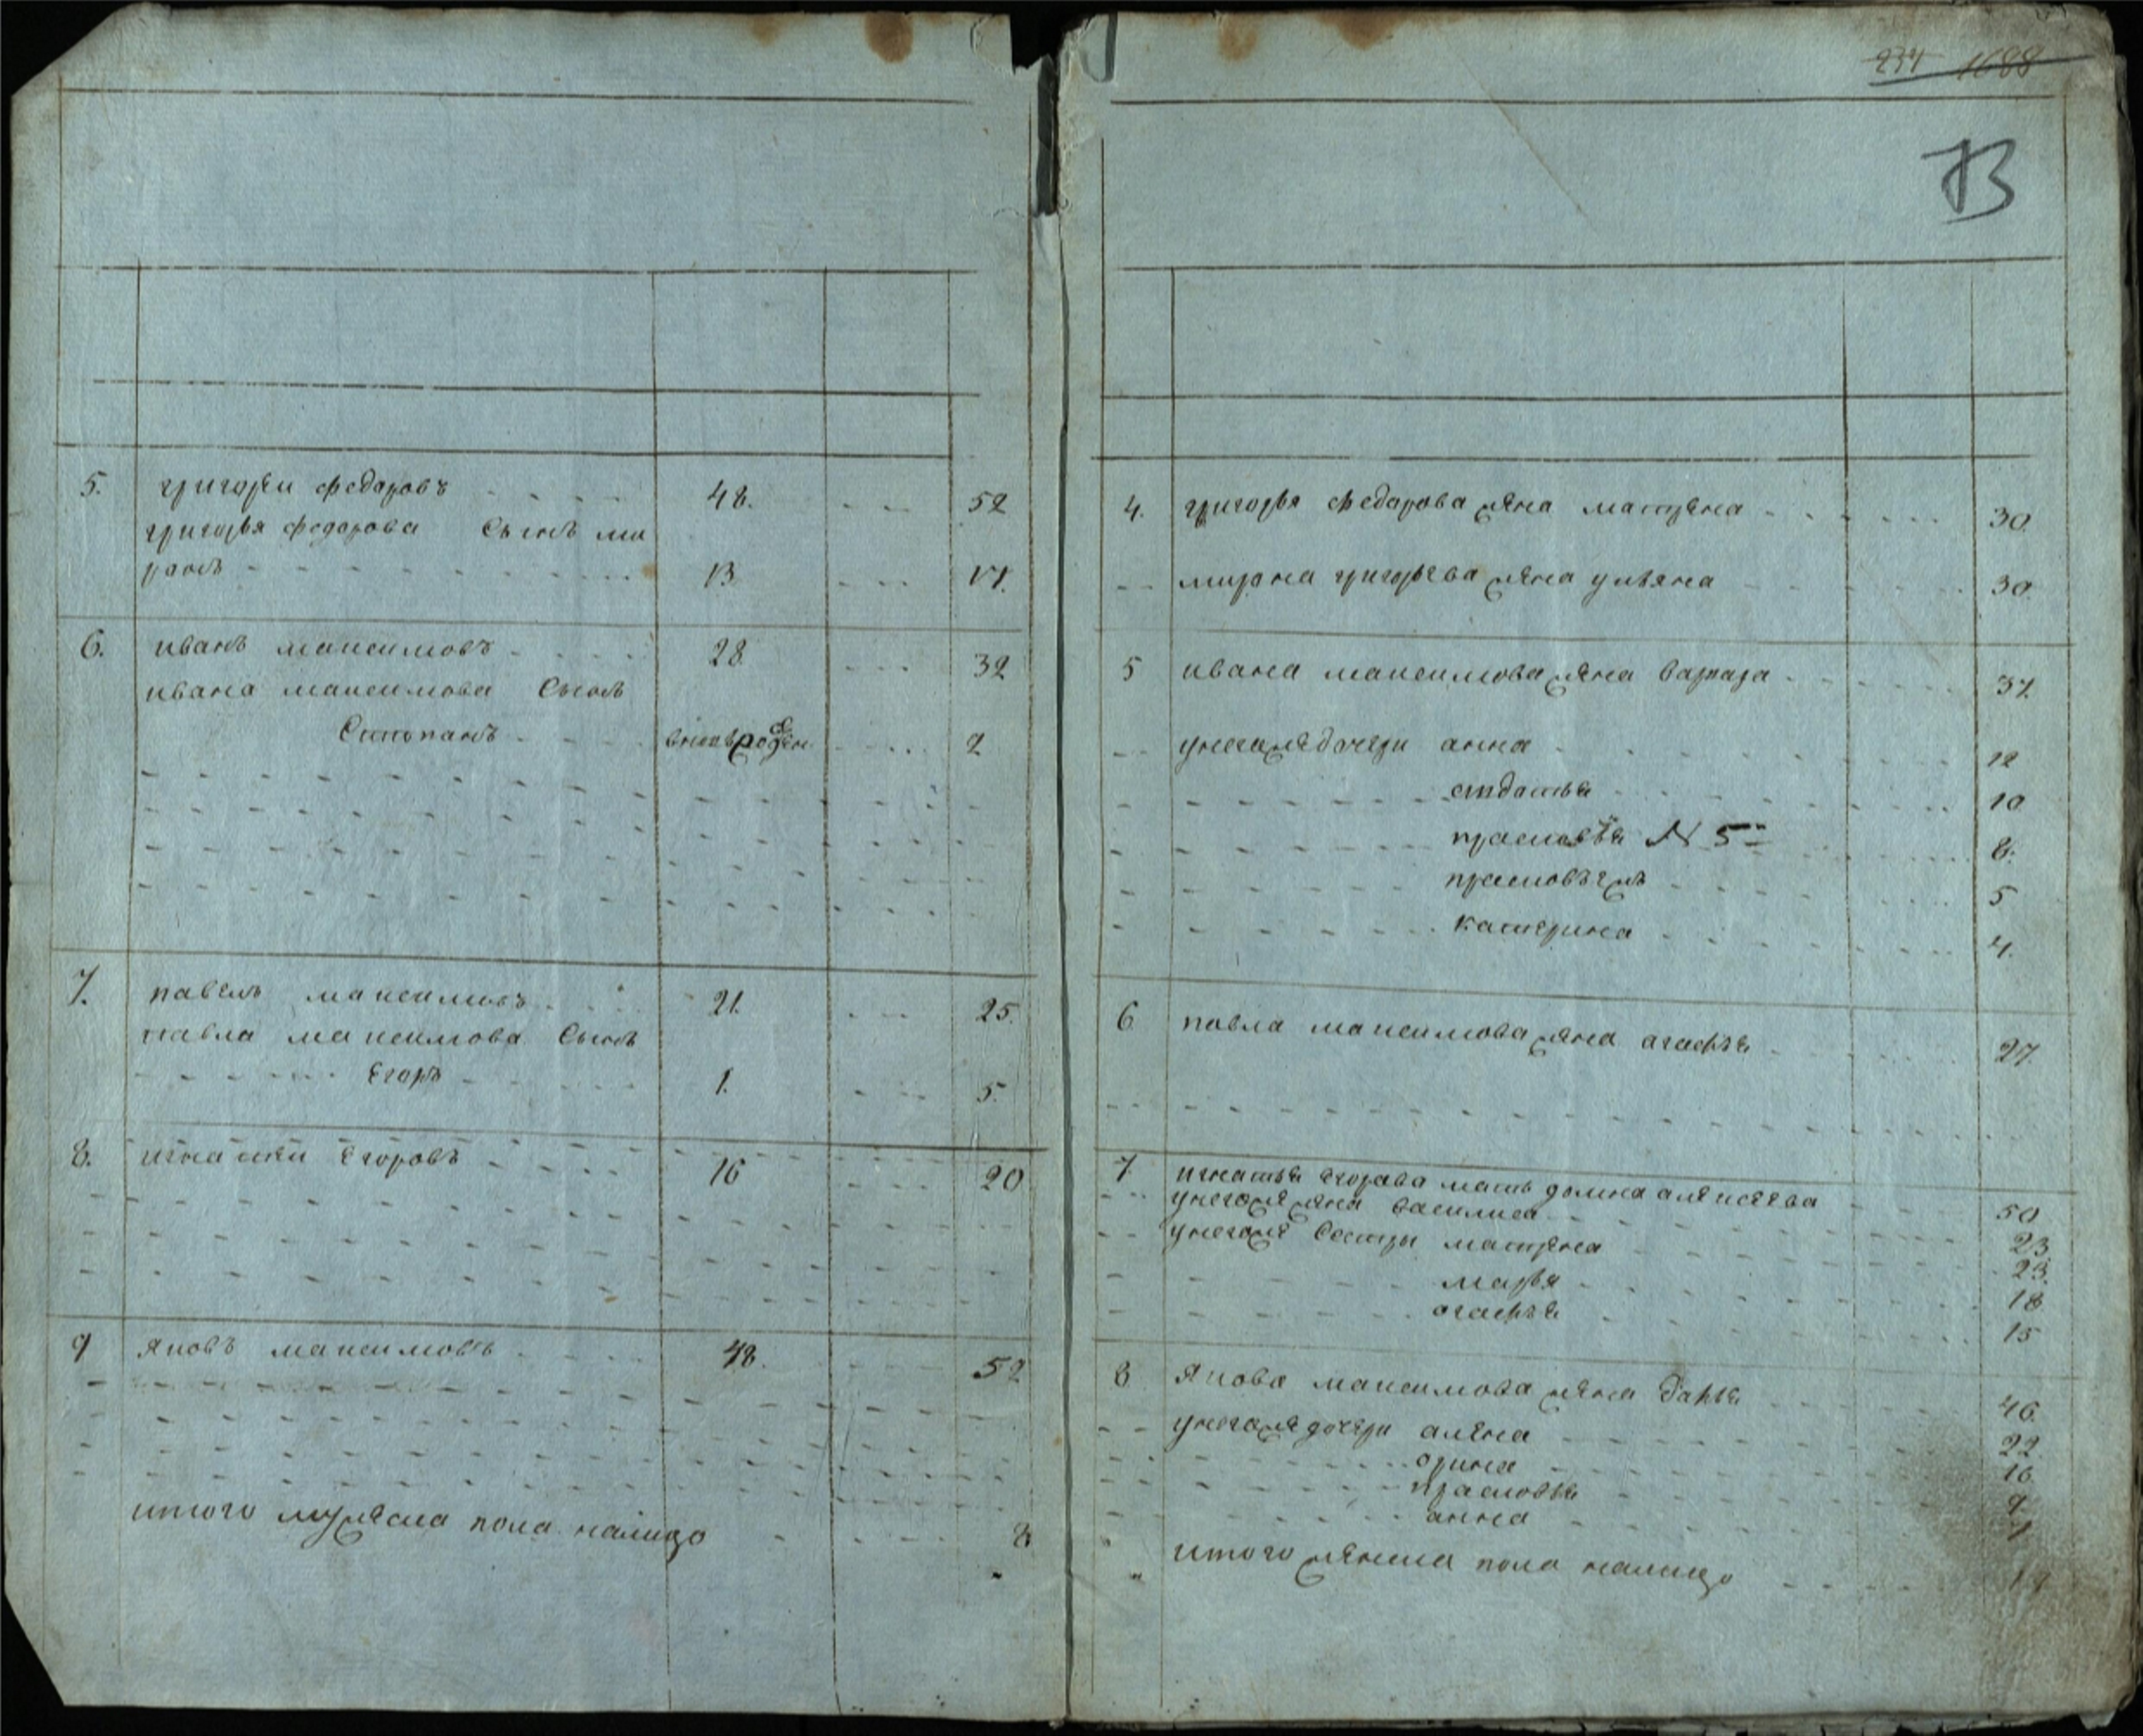 1688
13
5. григорьи федаровъ 48. 52
григорья федорова Сынъ ми
ранъ 13 17.
6. иванъ максимовъ 28. 32
ивана максимова Сынъ
Степанъ 2
7. павелъ максимовъ 21. 25.
павла максимова Сынъ
Егоръ 1. 5.
8. игнатеи Егоровъ 16 20
9 яковъ максимовъ 48. 52
итого мужеска пола налицо 8
4. григорья федарова жена матрена 30.
мирона григорьева жена ульяна 30.
5 ивана максимова жена варвара 37.
унегожедочери анна 12
10
прасковья N 5 8.
5
катерина 4.
6 павла максимова жена агафья 27.
7 игнатья егорава мать домна алексеева 50
унегоже жена василиса 23.
унегоже Сестры матрена 23.
марья 18
агафья 15
8 якова максимова жена дарья 46.
унегожедочери алена 22.
орина 16.
прасковья 9
анна
итого женска пола налицо